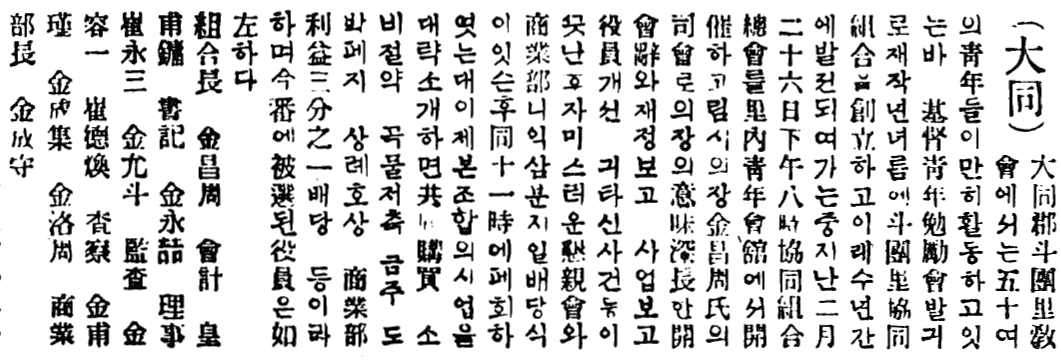 （大同）
大同郡斗團里敎
會에서는五十여
의靑年들이만히활동하고잇
는바 基督靑年勉勵會발긔
로재작년녀름에斗團里協同
組合을創立하고이래수년간
에발전되여가는중지난二月
二十六日下午八時協同組合
總會를里內靑年會舘에서開
催하고림시의장金昌周氏의
司會로의장의意味深長한開
會辭와재정보고 사업보고
役員개선 긔타신사건등이
끗난후자미스러운懇親會와
商業部니익삼분지일배당식
이잇슨후同十一時에페회하
엿는대이제본조합의사업을
대략소개하면共同購買 소
비절약 곡물저축 금주 도
박페지 상례호상 商業部
利益三分之一배당 등이라
하며今番에被選된役員은如
左하다
組合長 金昌周 會計 皇
甫鏞 書記 金永喆 理事
崔永三 金允斗 監査 金
容一 崔德煥 査察 金甫
瑾 金成集 金洛周 商業
部長 金成守